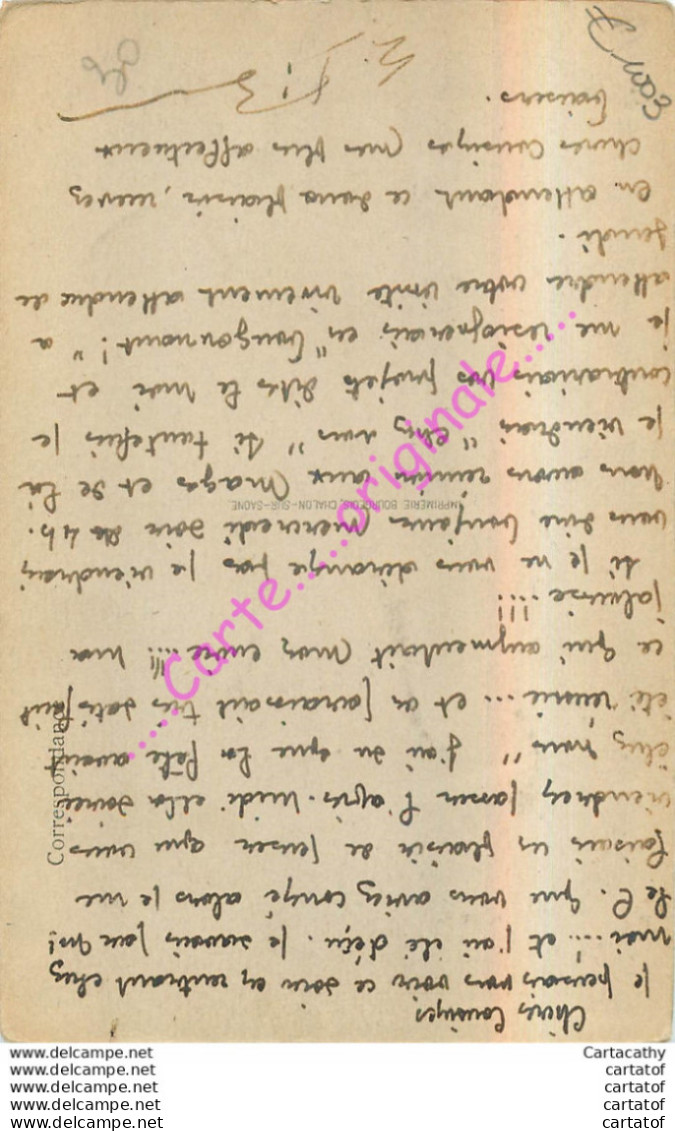 Chères Cousines
je pensais vous voir ce soir en rentrant chez
moi... et j'ai été déçu. Je savais par Mr
Le C. que vous aviez congé, alors je me
faisais un plaisir de penser que vous
viendrez passer l'après-midi et la soirée
chez "nous" J'ai su que la fête avait
été réussie... et on paraissait très satisfait
ce qui augmentait mon envie...!!! ma
jalousie...!!!
Si je ne vous dérange pas je viendrai
vous dire bonjour Mercredi soir de 4h.
nous avons réunion aux Mages et de là
je viendrais "chez vous" si toutefois je
contrariais vos projets dites le moi et
je me résignerais en "bougonnant!" à
attendre votre visite vivement attendue de
Jeudi.
En attendant ce doux plaisir, recevez
chères Cousines mes plus affectueux
baisers.
Correspondance
IMPRIMERIE BOURGEOIS, CHALON-SUR-SAONE
......Carte......originale......
www.delcampe.net
www.delcampe.net
www.delcampe.net
www.delcampe.net
www.delcampe.net
Cartacathy
cartatof
cartatof
cartatof
cartatof